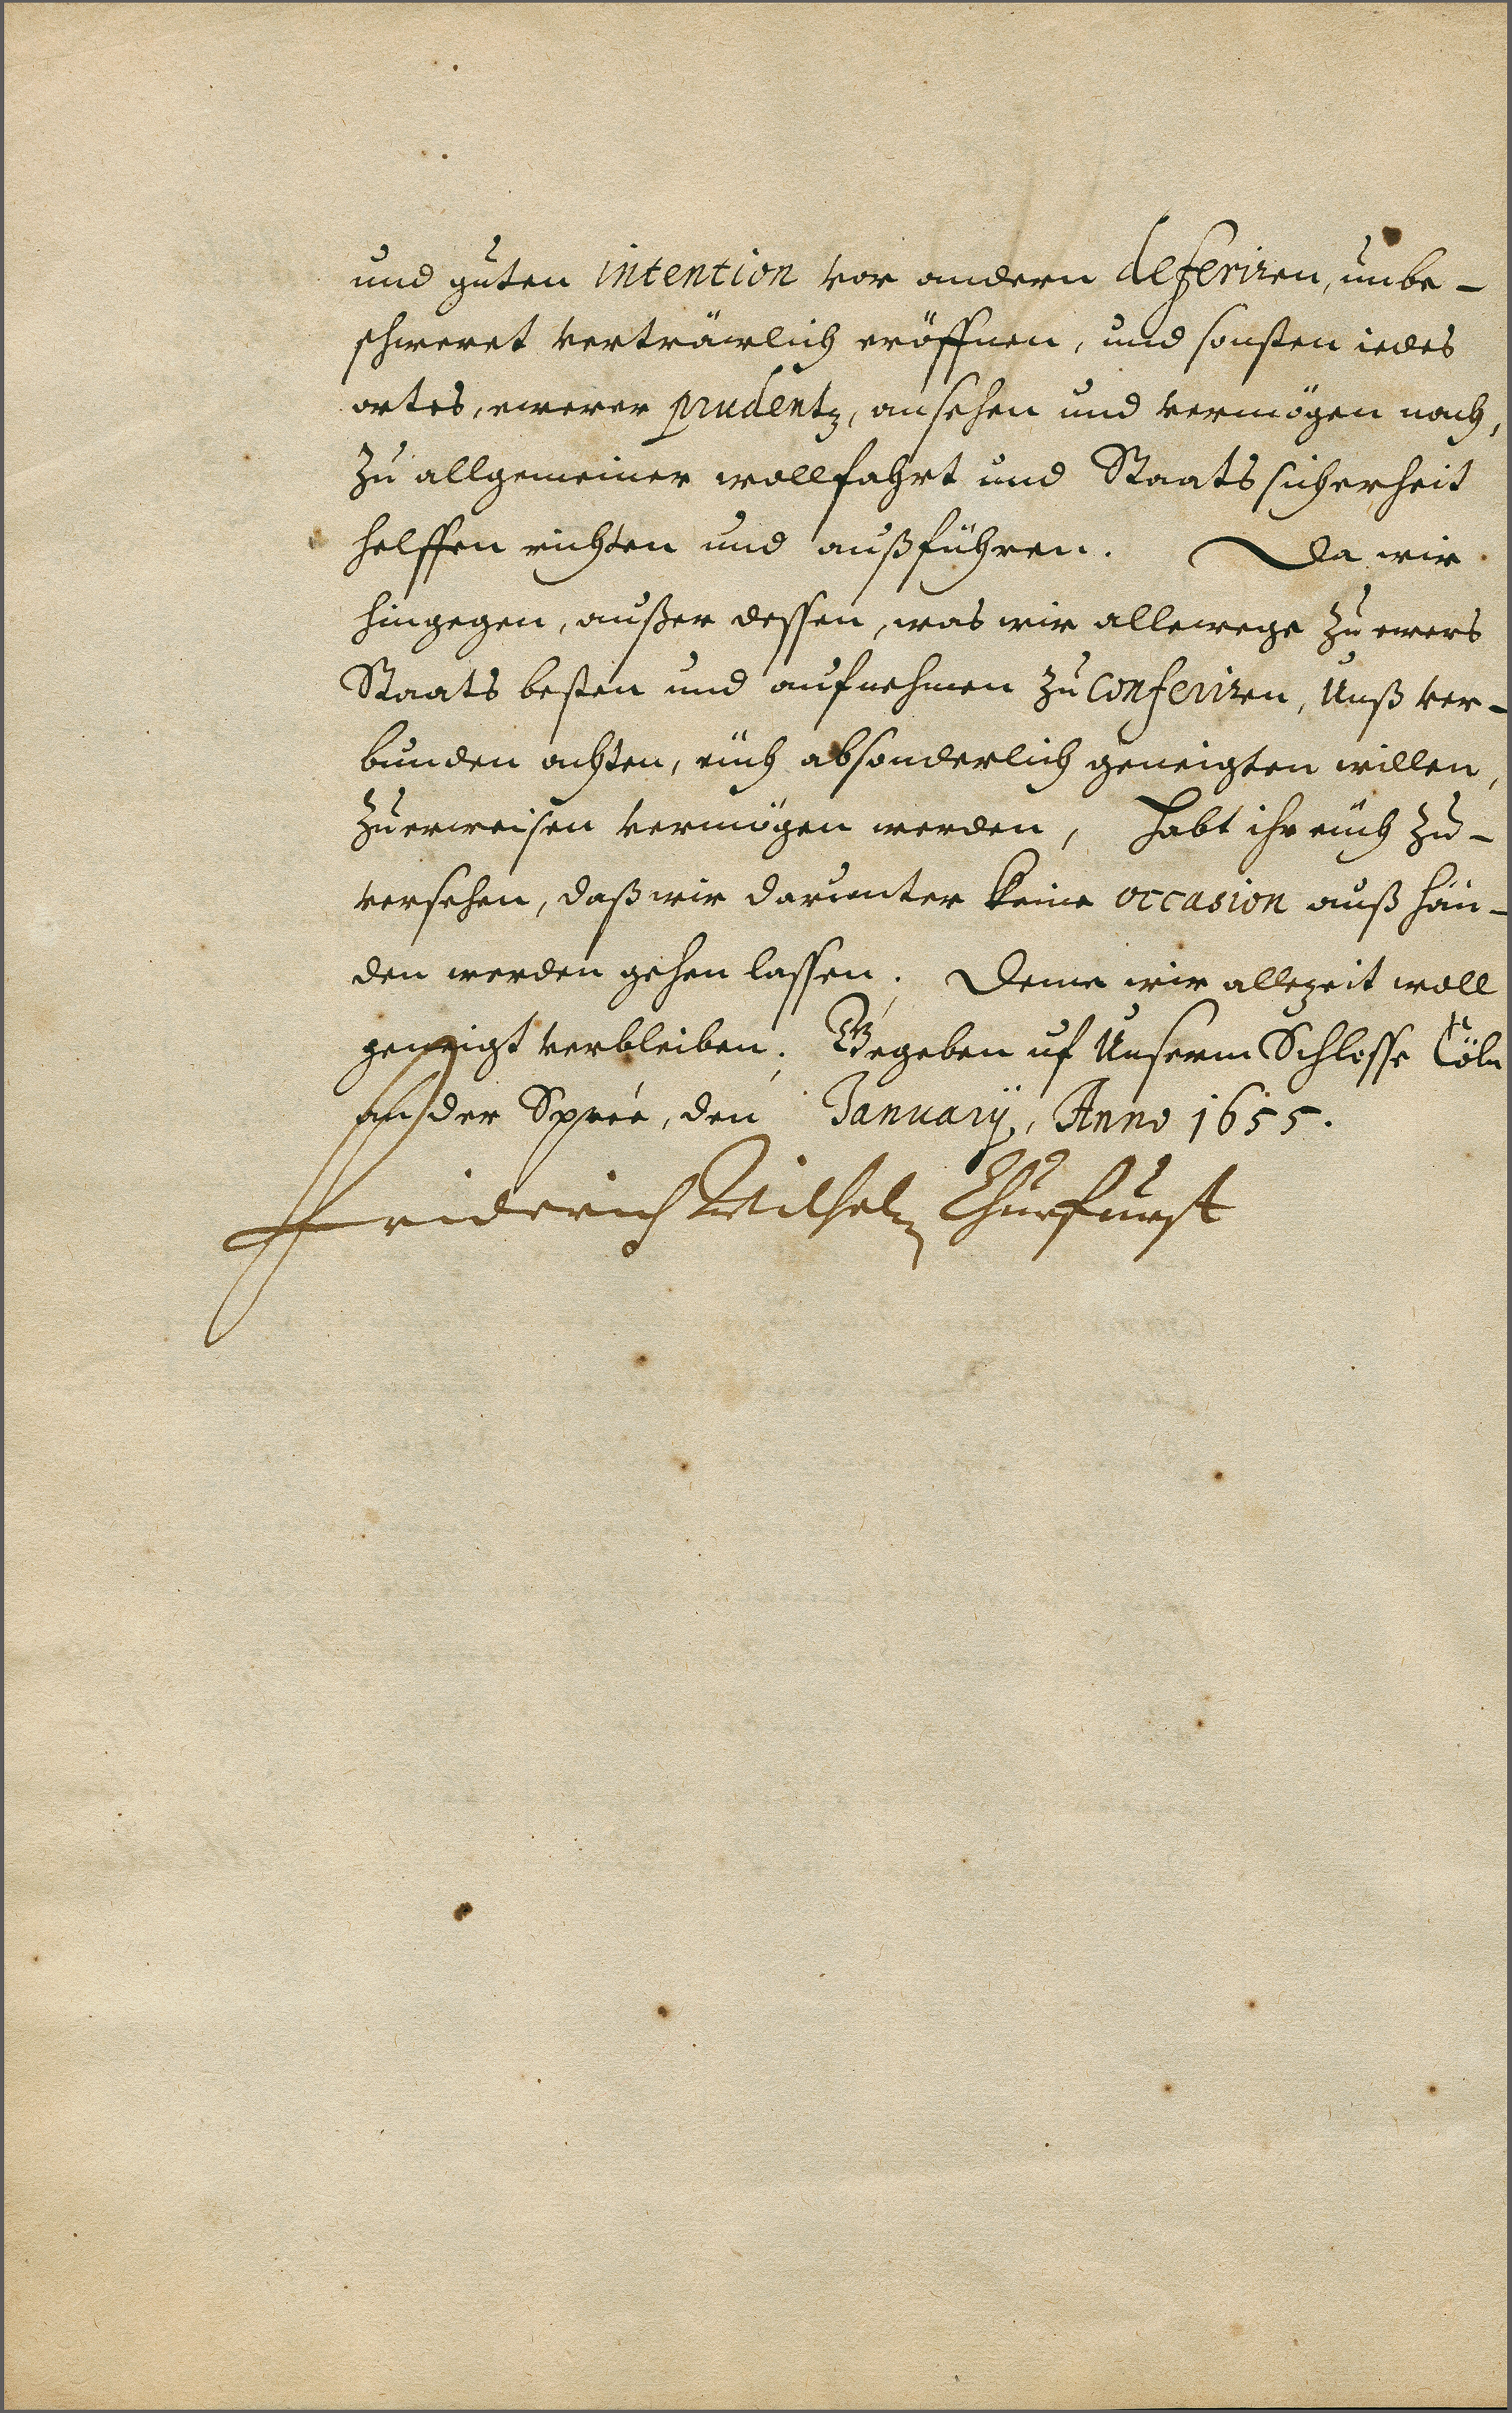 und guten intention vor andern deferiren, unbe-
schweret verträwlich eröffnen, und sonsten iedes
ortes, ewerer prudentz, ansehen und vermögen nach,
zu allgemeiner wollfahrt und Staats sicherheit
helffen richten und außführen. Da wir
hingegen, außer dessen, was wir allewege zu ewers
Staats besten und aufnehmen zu conferiren, Unß ver-
bunden achten, euch absonderlich geneigten willen,
zuerweisen vermögen werden, habt ihr euch zu-
versehen, daß wir darunter keine occasion auß hän-
den werden gehen lassen. Deme wir allezeit woll
geneigt verbleiben. Gegeben uf Unserm Schlosse Cöln
an der Sprée, den January, Anno 1655.
Friderich Wilhelm Churfurst